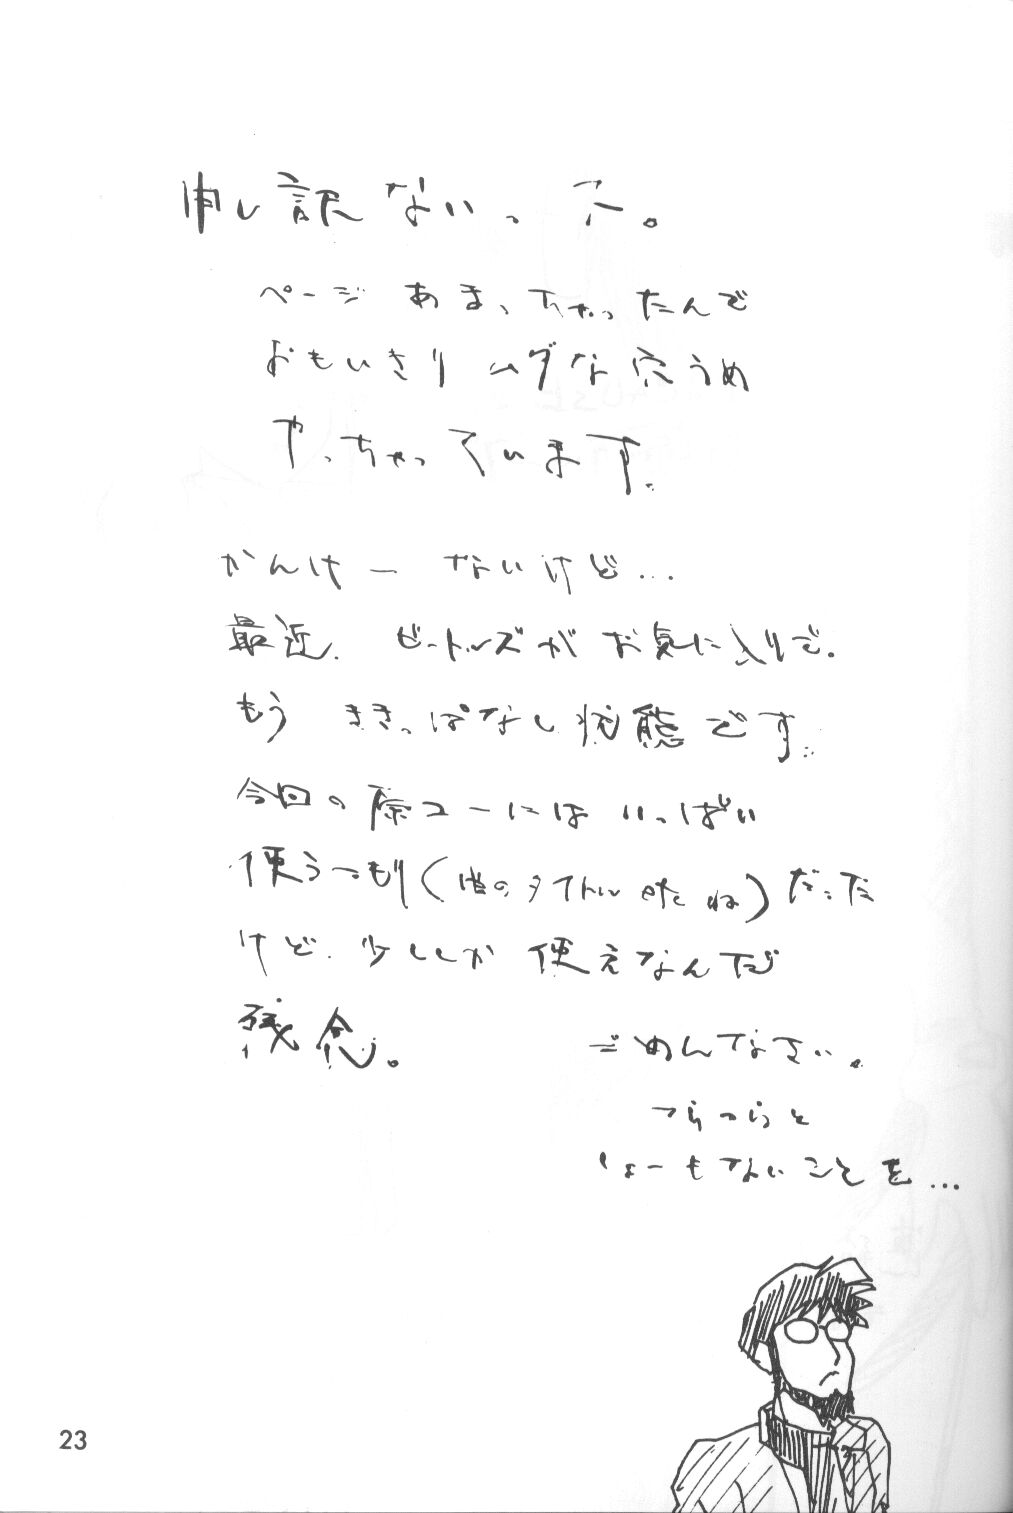 申し訳ないっス。
ページ あまっちゃったんで
おもいきり ムダな穴うめ
やっちゃっています。
かんけーないけど…
最近、ビートルズが お気に入りで。
もう ききっぱなし状態です。
今回の原コーには いっぱい
使うつもり(曲のタイトル etc ね)だった
けど、少ししか 使えなんだ
残念。
ごめんなさい。
つらつらと
しょーもないことを…
23